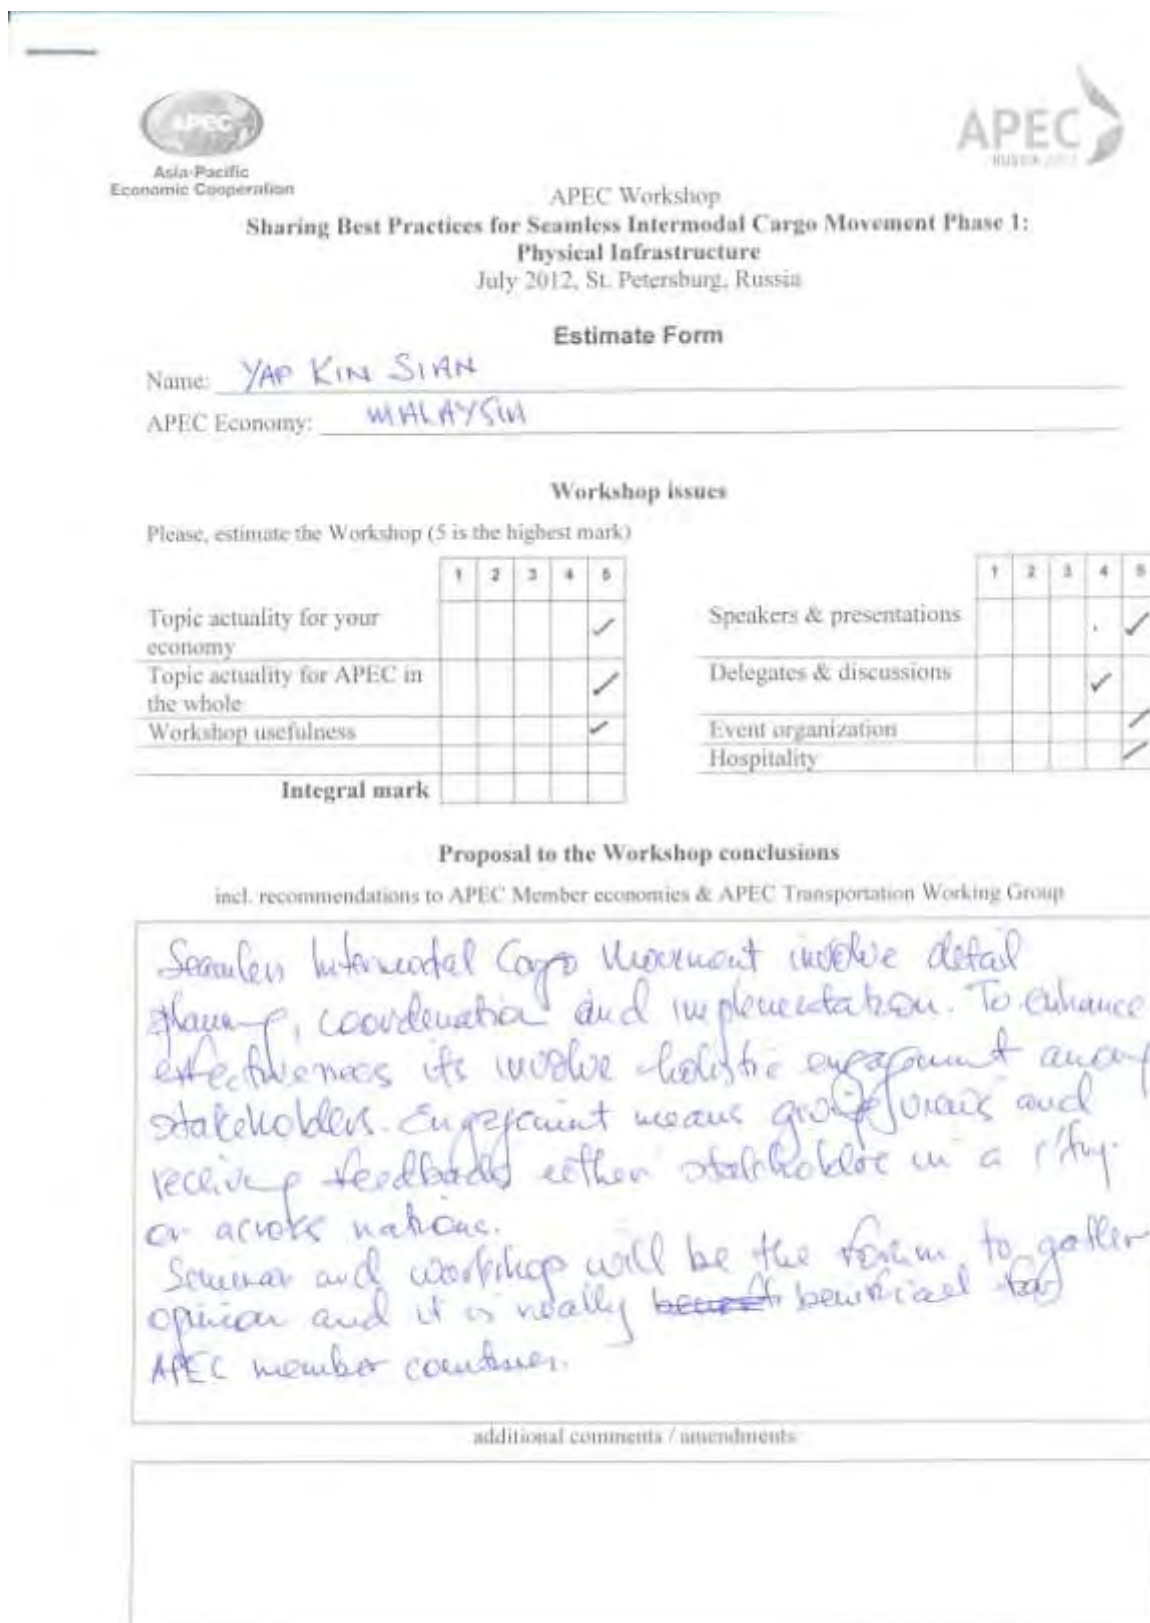 APEC
Asia-Pacific
Economic Cooperation
APEC
RUSSIA 2012
APEC Workshop
Sharing Best Practices for Seamless Intermodal Cargo Movement Phase 1:
Physical Infrastructure
July 2012, St. Petersburg, Russia
Estimate Form
Name: YAP KIN SIAN
APEC Economy: MALAYSIA
Workshop issues
Please, estimate the Workshop (5 is the highest mark)
1 2 3 4 5
Topic actuality for your
economy
Topic actuality for APEC in
the whole
Workshop usefulness
Integral mark
1 2 3 4 5
Speakers & presentations
Delegates & discussions
Event organization
Hospitality
Proposal to the Workshop conclusions
incl. recommendations to APEC Member economies & APEC Transportation Working Group
Seamless Intermodal Cargo Movement involve detail
planning, coordination and implementation. To enhance
effectiveness its involve holistic engagement among
stakeholders. Engagement means and
receiving feedback either stakeholder in a
or across nations.
Seminar and workshop will be the forum to gather
opinion and it is really beneficial for
APEC member countries.
additional comments / amendments